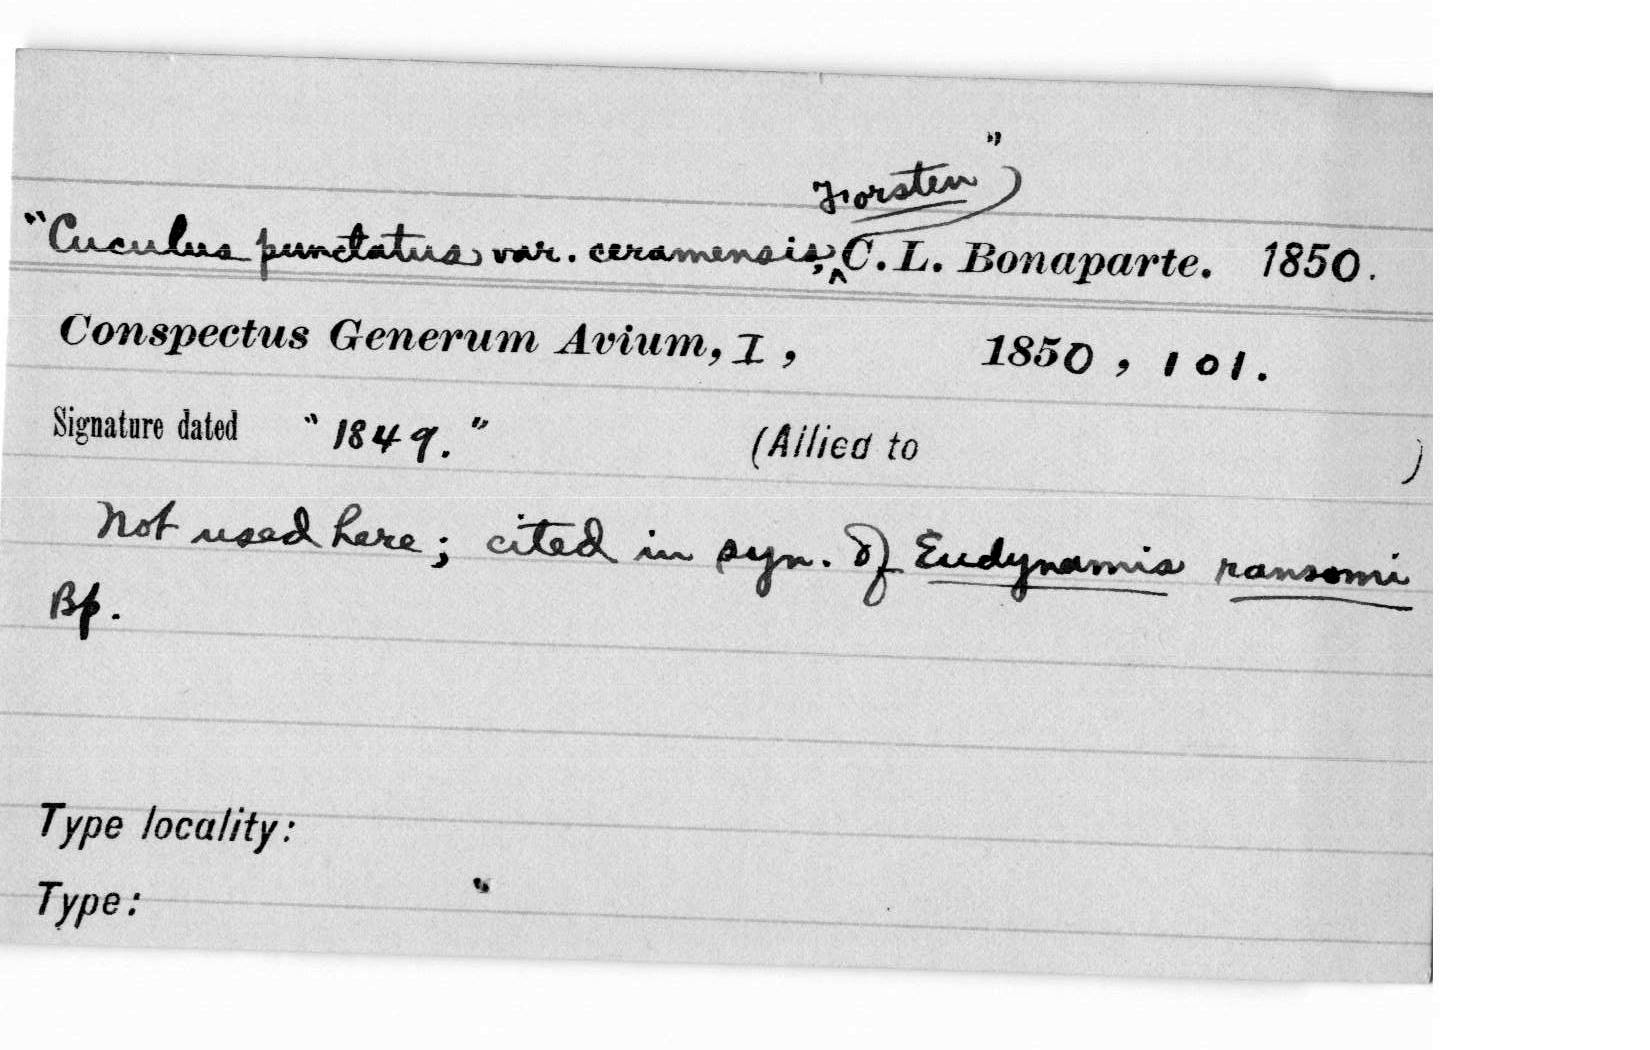 Forsten"
"Cuculus punctatus, var. ceramensis, C. L. Bonaparte. 1850.
Conspectus Generum Avium, I, 1850, 101.
Signature dated "1849." (Allied to )
Not used here; cited in syn. of Eudynamis ransomi
Bp.
Type locality:
Type: